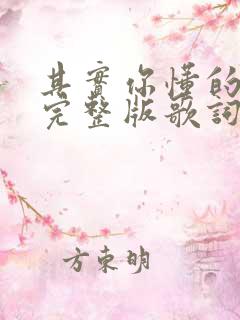 其實你懂的
完整版歌詞
方東明